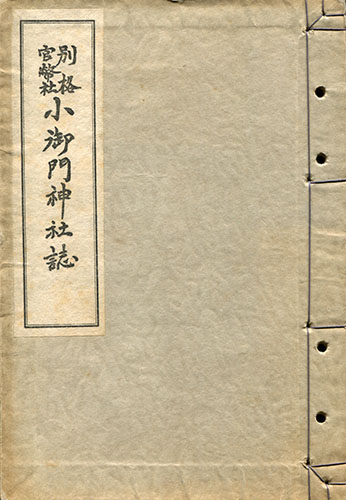 別格
官幣社
小御門神社誌